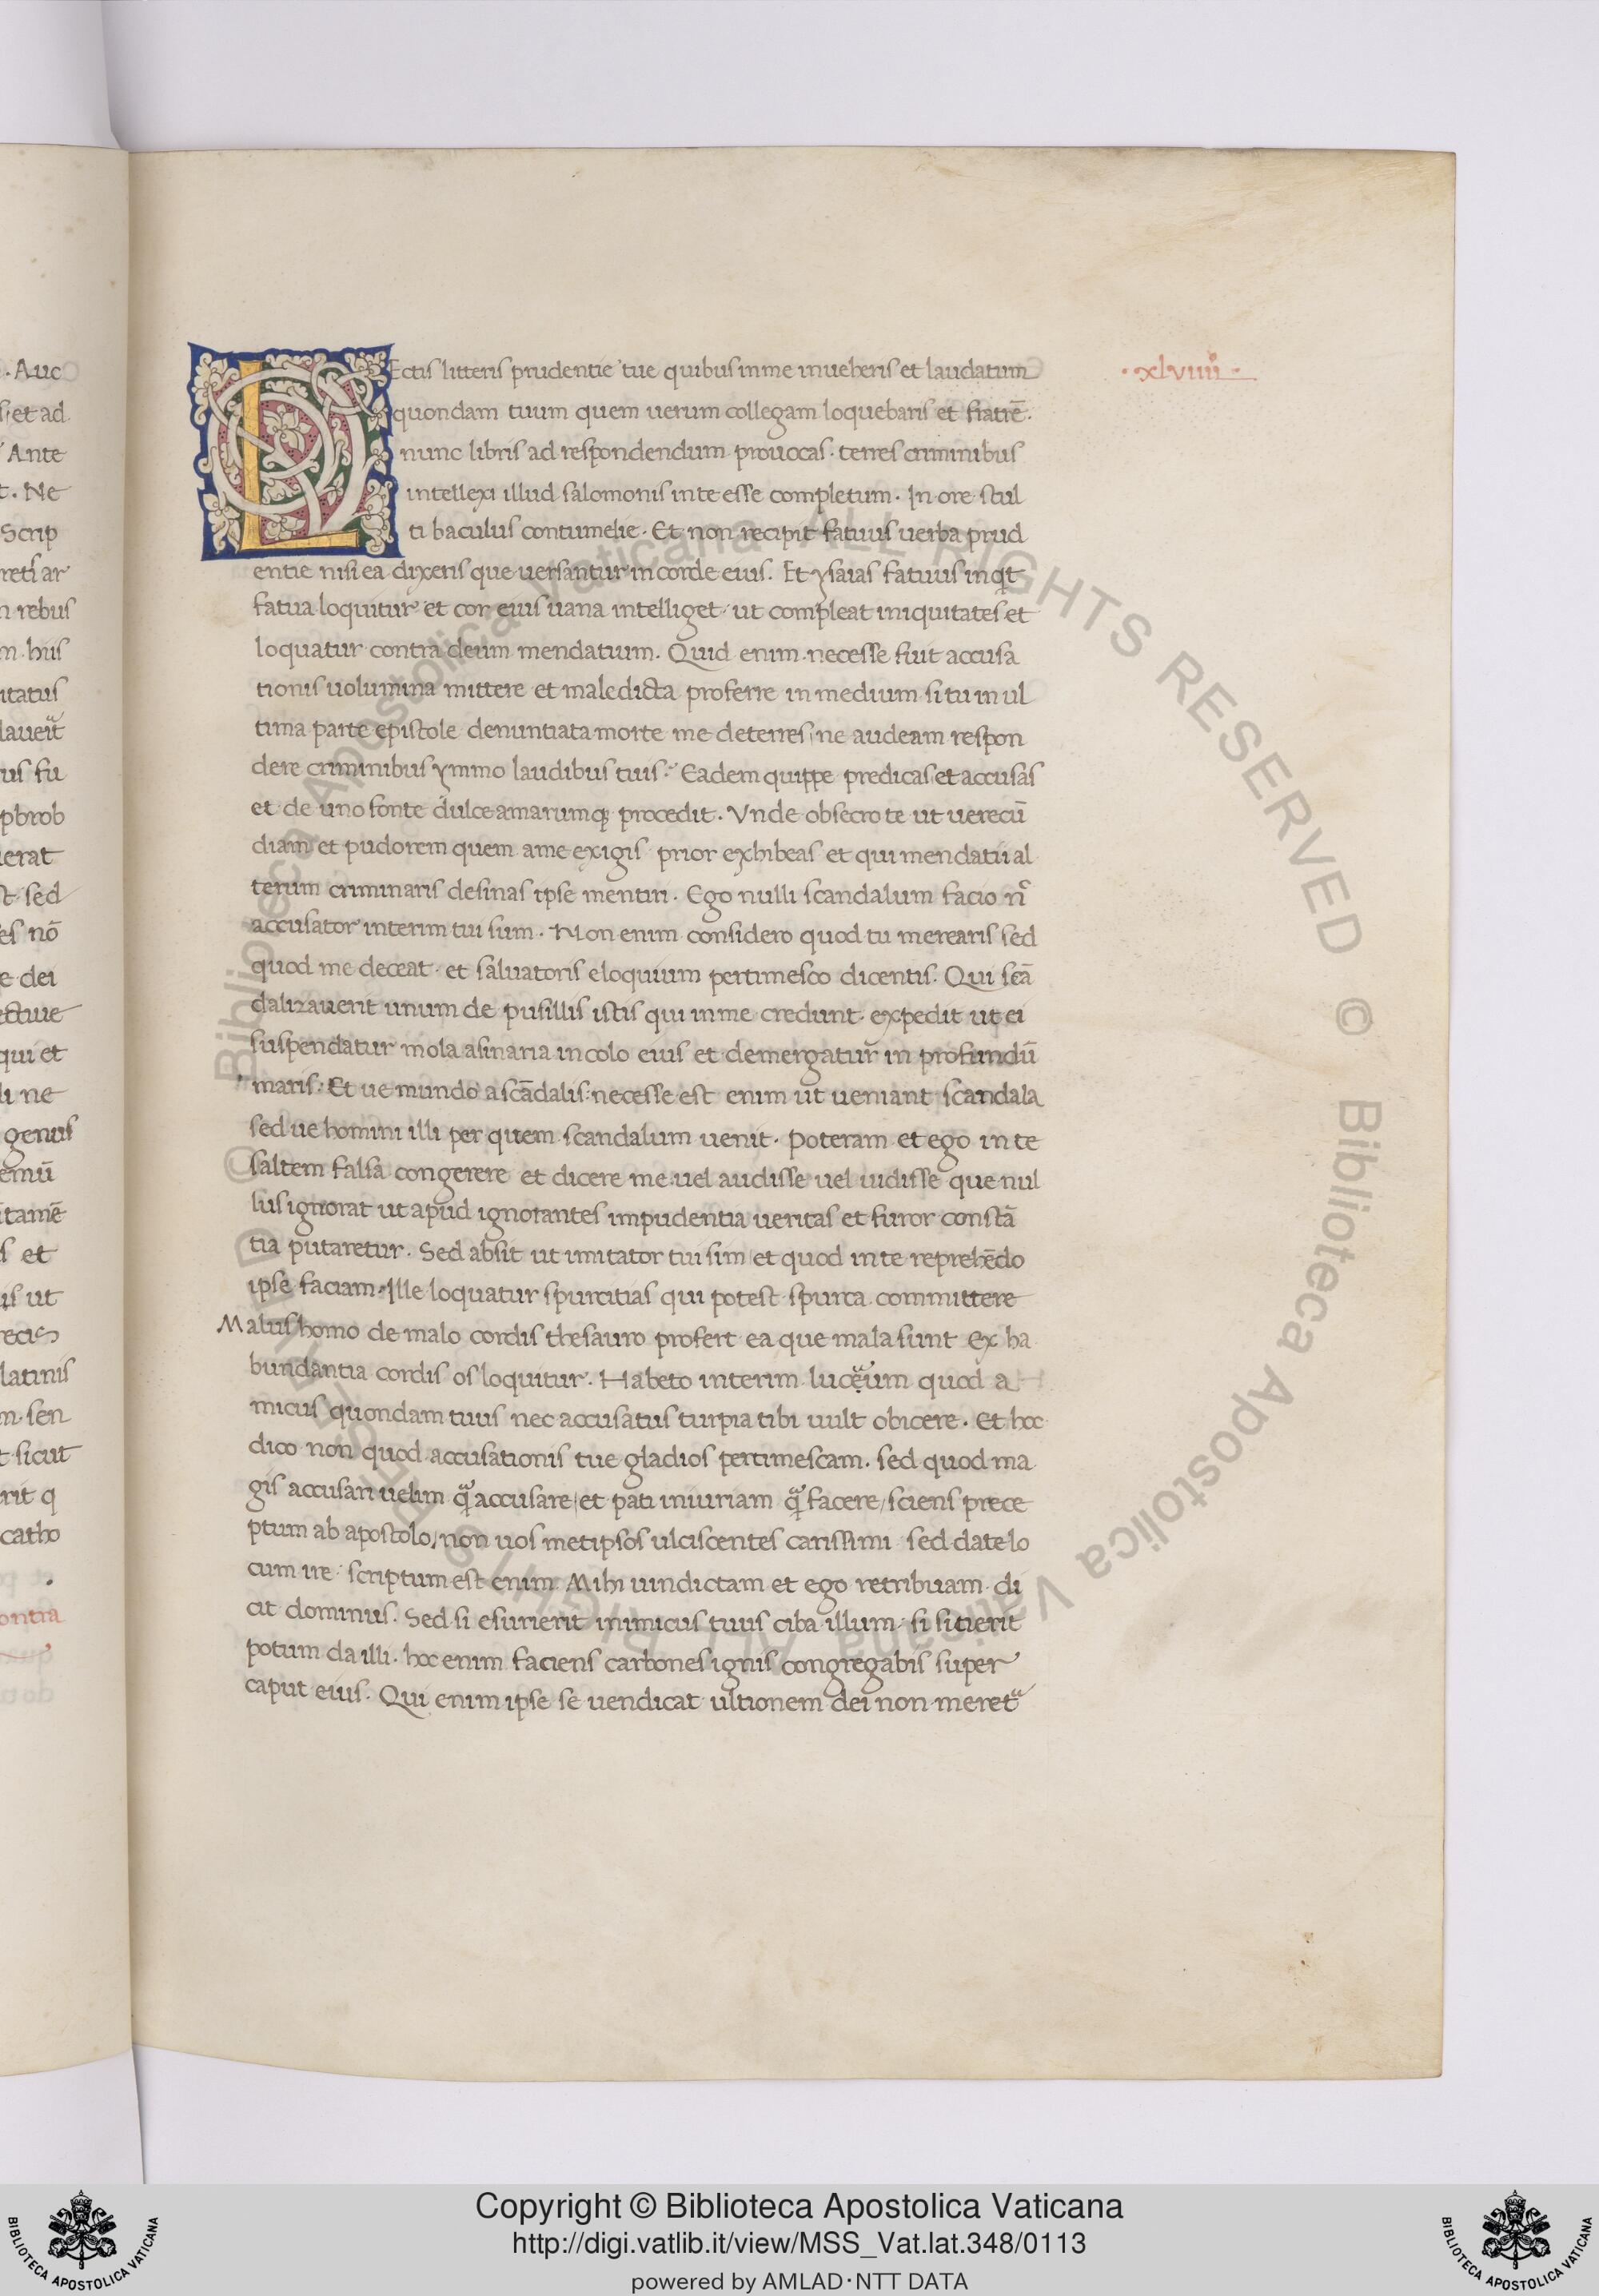 . Auc
s et ad
Ante
t. Ne
Scrip
reti ar
n rebus
m. huis
itatus
us fu
pbrob
ierat
t sed
es nō
e dei
ectiue
qui et
li ne
genus
emū
itamē
s et
is ut
recis
latinis
m. sen
t sicut
rit q
catho
ontra
LEctis litteris prudentie tue quibus in me inueheris et laudatum
quondam tuum quem uerum collegam loquebaris et fratrē.
nunc libris ad respondendum prouocas. terres criminibus
intellexi illud salomonis in te esse completum. In ore stul
ti baculus contumelie. Et non recipit fatuus uerba prud
entie nisi ea dixeris que uersantur in corde eius. Et ysaias fatuus inqt
fatua loquitur et cor eius uana intelliget ut compleat iniquitates et
loquatur contra deum mendatium. Quid enim necesse fuit accusa
tionis uolumina mittere et maledicta proferre in medium si tu in ul
tima parte epistole denuntiata morte me deterres ne audeam respon
dere criminibus ymmo laudibus tuis. Eadem quippe predicas et accusas
et de uno fonte dulce amarumq; procedit. Vnde obsecro te ut uerecū
diam et pudorem quem a me exigis prior exhibeas et qui mendatii al
terum criminaris desinas ipse mentiri. Ego nulli scandalum facio nc
accusator interim tui sum. Non enim considero quod tu merearis sed
quod me deceat et saluatoris eloquium pertimesco dicentis. Qui scā
dalizauerit unum de pusillis istis qui in me credunt. expedit ut ei
suspendatur mola asinaria in colo eius et demergatur in profundū
maris. Et ue mundo a scādalis: necesse est enim ut ueniant scandala
sed ue homini illi per quem scandalum uenit. Poteram et ego in te
saltem falsa congerere et dicere me uel audisse uel uidisse que nul
lus ignorat ut apud ignorantes impudentia ueritas et furor constā
tia putaretur. Sed absit ut imitator tui sim et quod in te reprehēdo
ipse faciam. Ille loquatur spurcitias qui potest spurca committere
Malus homo de malo cordis thesauro profert ea que mala sunt Ex ha
bundantia cordis os loquitur. Habeto interim lucrum quod a
micus quondam tuus nec accusatus turpia tibi uult obicere. Et hoc
dico non quod accusationis tue gladios pertimescam. sed quod ma
gis accusari uelim qͣ accusare et pati iniuriam qͣ facere, sciens prece
ptum ab apostolo, non uos metipsos ulciscentes carissimi sed date lo
cum ire. scriptum est enim. Mihi uindictam et ego retribuam di
cit dominus. Sed si esurierit inimicus tuus ciba illum. si sitierit
potum da illi. hoc enim faciens carbones ignis congregabis super
caput eius. Qui enim ipse se uendicat ultionem dei non meret
.xlviiii.
© Biblioteca Apostolica Vaticana ALL RIGHTS RESERVED © Biblioteca Apostolica Vaticana ALL RIGHTS RESERVED
Copyright © Biblioteca Apostolica Vaticana
http://digi.vatlib.it/view/MSS_Vat.lat.348/0113
powered by AMLAD·NTT DATA
BIBLIOTECA APOSTOLICA VATICANA
BIBLIOTECA APOSTOLICA VATICANA